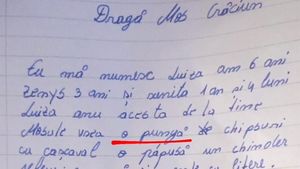 Dragă Moș Crăciun
Eu mă numesc Luiza am 6 ani
Zenys 3 ani și sanita 1 an și 4 luni
Luiza anu acesta de la tine
Mosule vrea o pungă de chipsuri
cu cașcaval o păpusă un chimoler
litere.